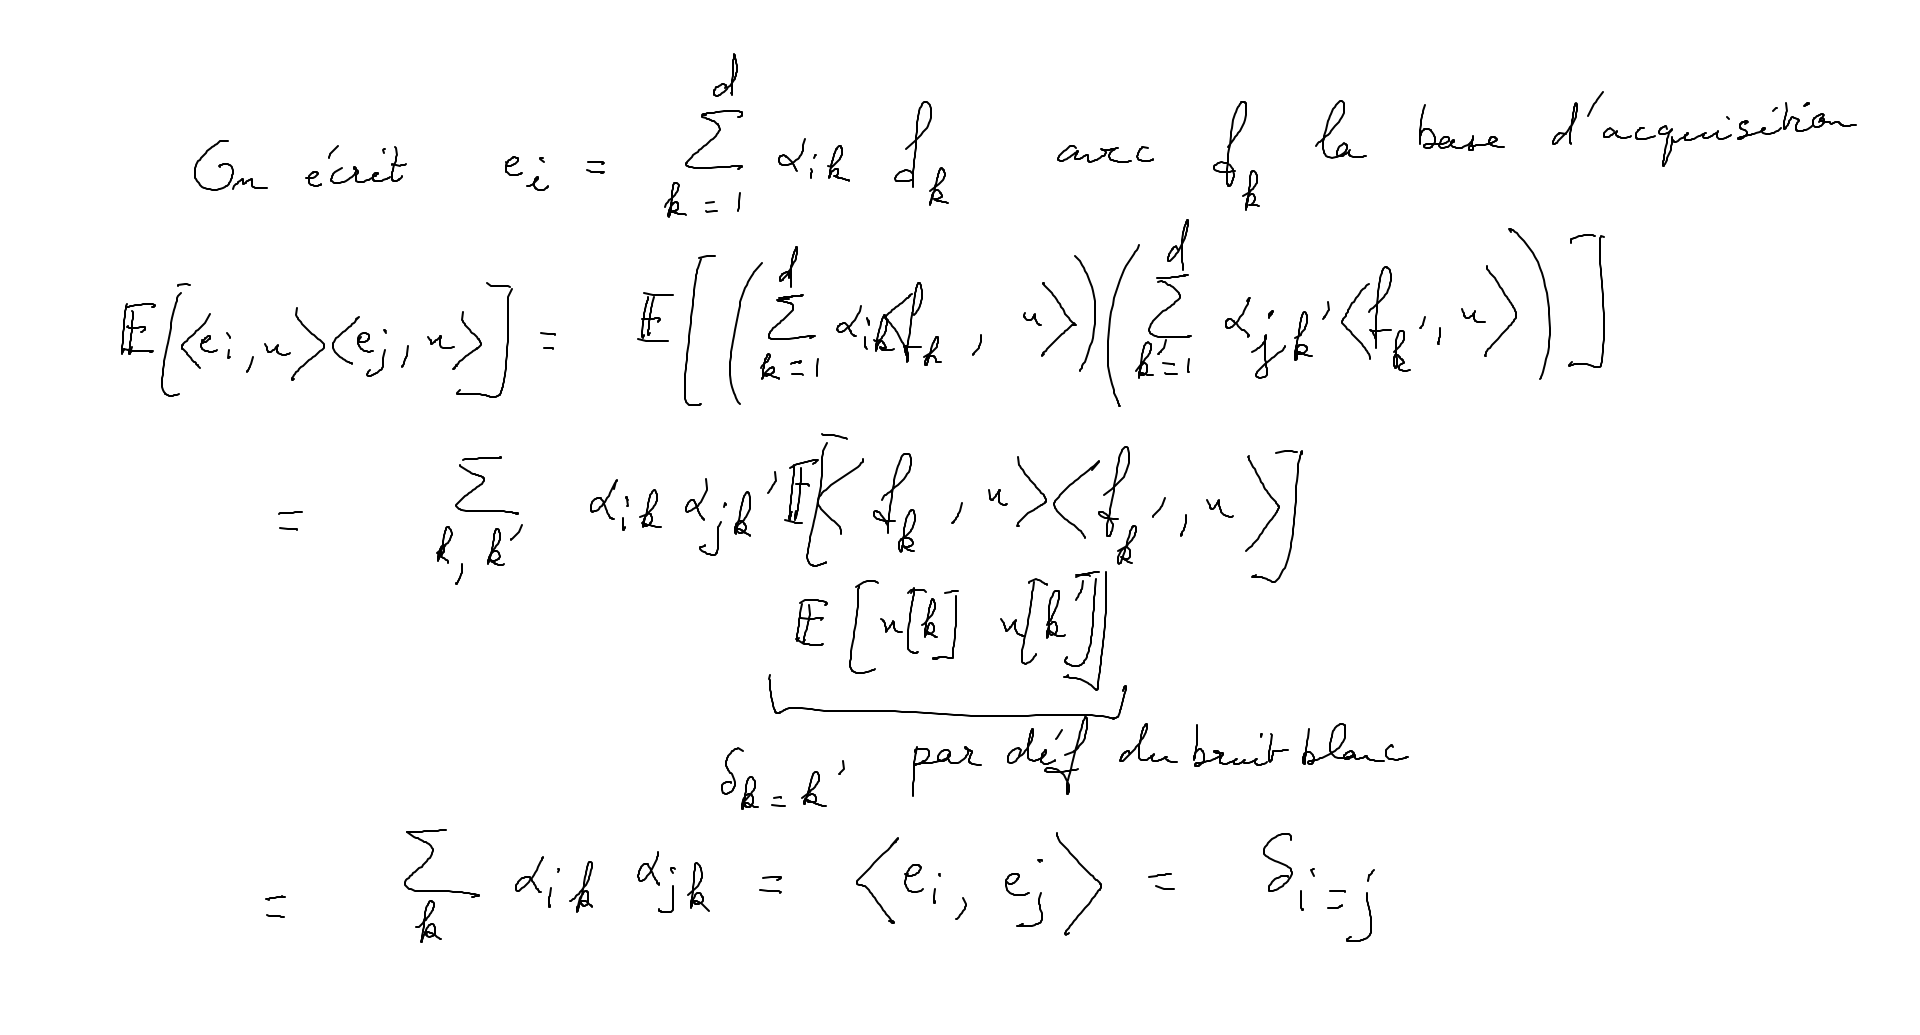 On écrit e_i = Σ_{k=1}^{d} α_{ik} f_k avec f_k la base d'acquisition
𝔼[<e_i, n><e_j, n>] = 𝔼[(Σ_{k=1}^{d} α_{ik}<f_k, n>)(Σ_{k'=1}^{d} α_{jk'}<f_{k'}, n>)]
= Σ_{k, k'} α_{ik} α_{jk'} 𝔼[<f_k, n><f_{k'}, n>]
𝔼[n[k] n[k']]
δ_{k=k'} par déf du bruit blanc
= Σ_k α_{ik} α_{jk} = <e_i, e_j> = δ_{i=j}